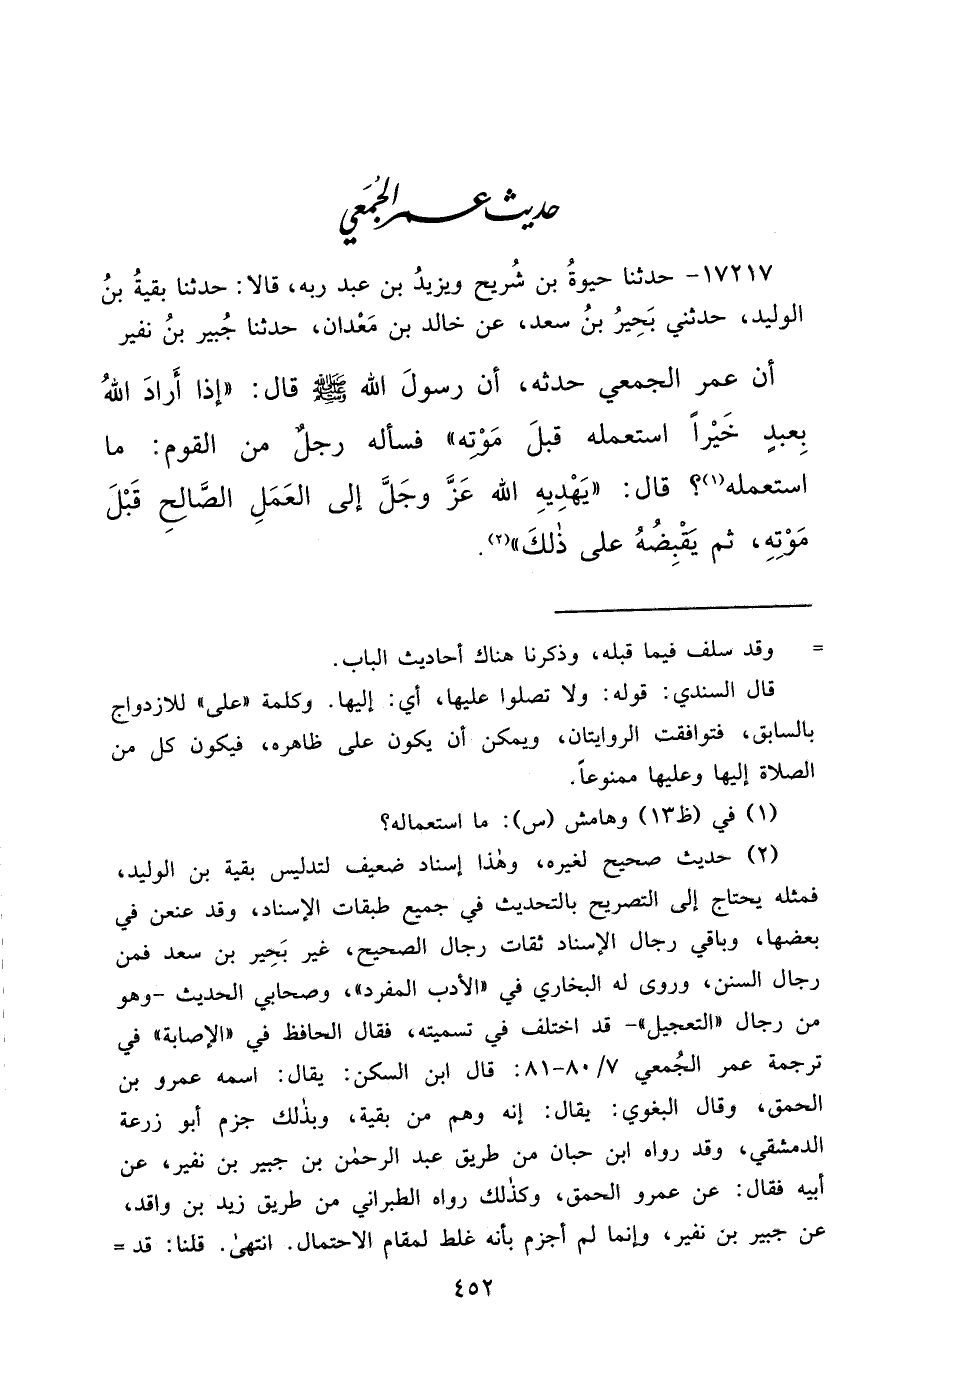 حديث عمر الجُمَعي
١٧٢١٧- حدثنا حيوةُ بن شُريح ويزيدُ بن عبد ربه، قالا: حدثنا بقيةُ بنُ
الوليد، حدثني بَحِيرُ بنُ سعد، عن خالد بن مَعْدان، حدثنا جُبير بنُ نفير
أن عمر الجمعي حدثه، أن رسولَ الله ﷺ قال: «إذا أَرادَ اللهُ
بِعبدٍ خَيْراً استعمله قبلَ مَوْتِه» فسأله رجلٌ من القوم: ما
استعمله(١)؟ قال: «يَهْدِيهِ الله عَزَّ وجَلَّ إلى العَمَلِ الصَّالحِ قَبْلَ
مَوْتِهِ، ثم يَقْبِضُهُ على ذٰلكَ»(٢).
= وقد سلف فيما قبله، وذكرنا هناك أحاديث الباب.
قال السندي: قوله: ولا تصلوا عليها، أي: إليها. وكلمة «على» للازدواج
بالسابق، فتوافقت الروايتان، ويمكن أن يكون على ظاهره، فيكون كل من
الصلاة إليها وعليها ممنوعاً.
(١) في (ظ١٣) وهامش (س): ما استعماله؟
(٢) حديث صحيح لغيره، وهٰذا إسناد ضعيف لتدليس بقية بن الوليد،
فمثله يحتاج إلى التصريح بالتحديث في جميع طبقات الإسناد، وقد عنعن في
بعضها، وباقي رجال الإسناد ثقات رجال الصحيح، غير بَحِير بن سعد فمن
رجال السنن، وروى له البخاري في «الأدب المفرد»، وصحابي الحديث -وهو
من رجال «التعجيل»- قد اختلف في تسميته، فقال الحافظ في «الإصابة» في
ترجمة عمر الجُمعي ٧/ ٨٠-٨١: قال ابن السكن: يقال: اسمه عمرو بن
الحمق، وقال البغوي: يقال: إنه وهم من بقية، وبذٰلك جزم أبو زرعة
الدمشقي، وقد رواه ابن حبان من طريق عبد الرحمٰن بن جبير بن نفير، عن
أبيه فقال: عن عمرو الحمق، وكذٰلك رواه الطبراني من طريق زيد بن واقد،
عن جبير بن نفير، وإنما لم أجزم بأنه غلط لمقام الاحتمال. انتهىٰ. قلنا: قد =
٤٥٢